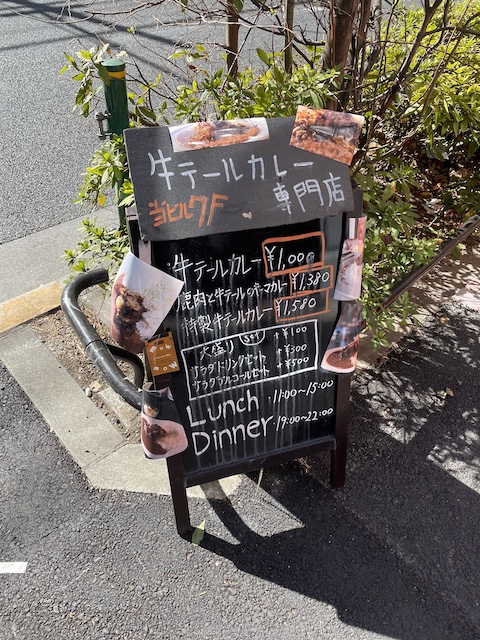 牛テールカレー
専門店
当ビル7F
牛テールカレー ¥1,000
鹿肉と牛テールのキーマカレー ¥1,380
特製牛テールカレー ¥1,580
Set
大盛り +¥100
サラダドリンクセット +¥300
サラダアルコールセット +¥500
Lunch 11:00~15:00
Dinner 19:00~22:00